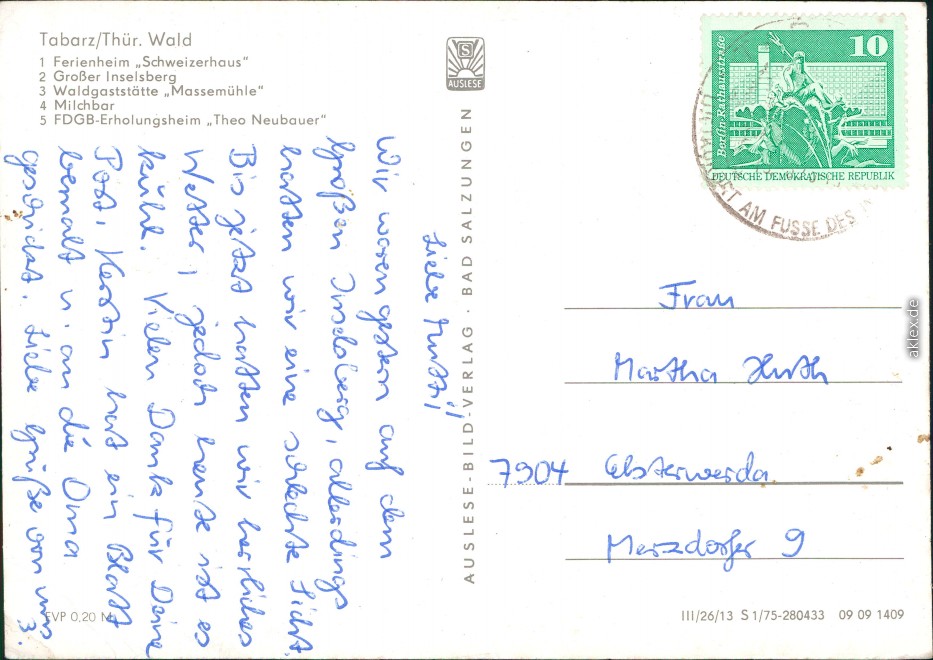 Tabarz/Thür. Wald
1 Ferienheim „Schweizerhaus“
2 Großer Inselsberg
3 Waldgaststätte „Massemühle“
4 Milchbar
5 FDGB-Erholungsheim „Theo Neubauer“
S
AUSLESE
AUSLESE-BILD-VERLAG · BAD SALZUNGEN
10
Berlin Rathausstraße
DEUTSCHE DEMOKRATISCHE REPUBLIK
AM FUSSE DES
Liebe Mutti!
Wir waren gestern auf dem
Großen Inselsberg, allerdings
hatten wir eine schlechte Sicht.
Bis jetzt hatten wir herrliches
Wetter, jedoch heute ist es
kühl. Vielen Dank für Deine
Post. Kerstin hat ein Blatt
bemalt u. an die Oma
geschickt. Liebe Grüße von uns
3.
Frau
Martha Huth
7904 Elsterwerda
Merzdorfer 9
EVP 0,20 M
III/26/13 S 1/75-280433 09 09 1409
aklex.de